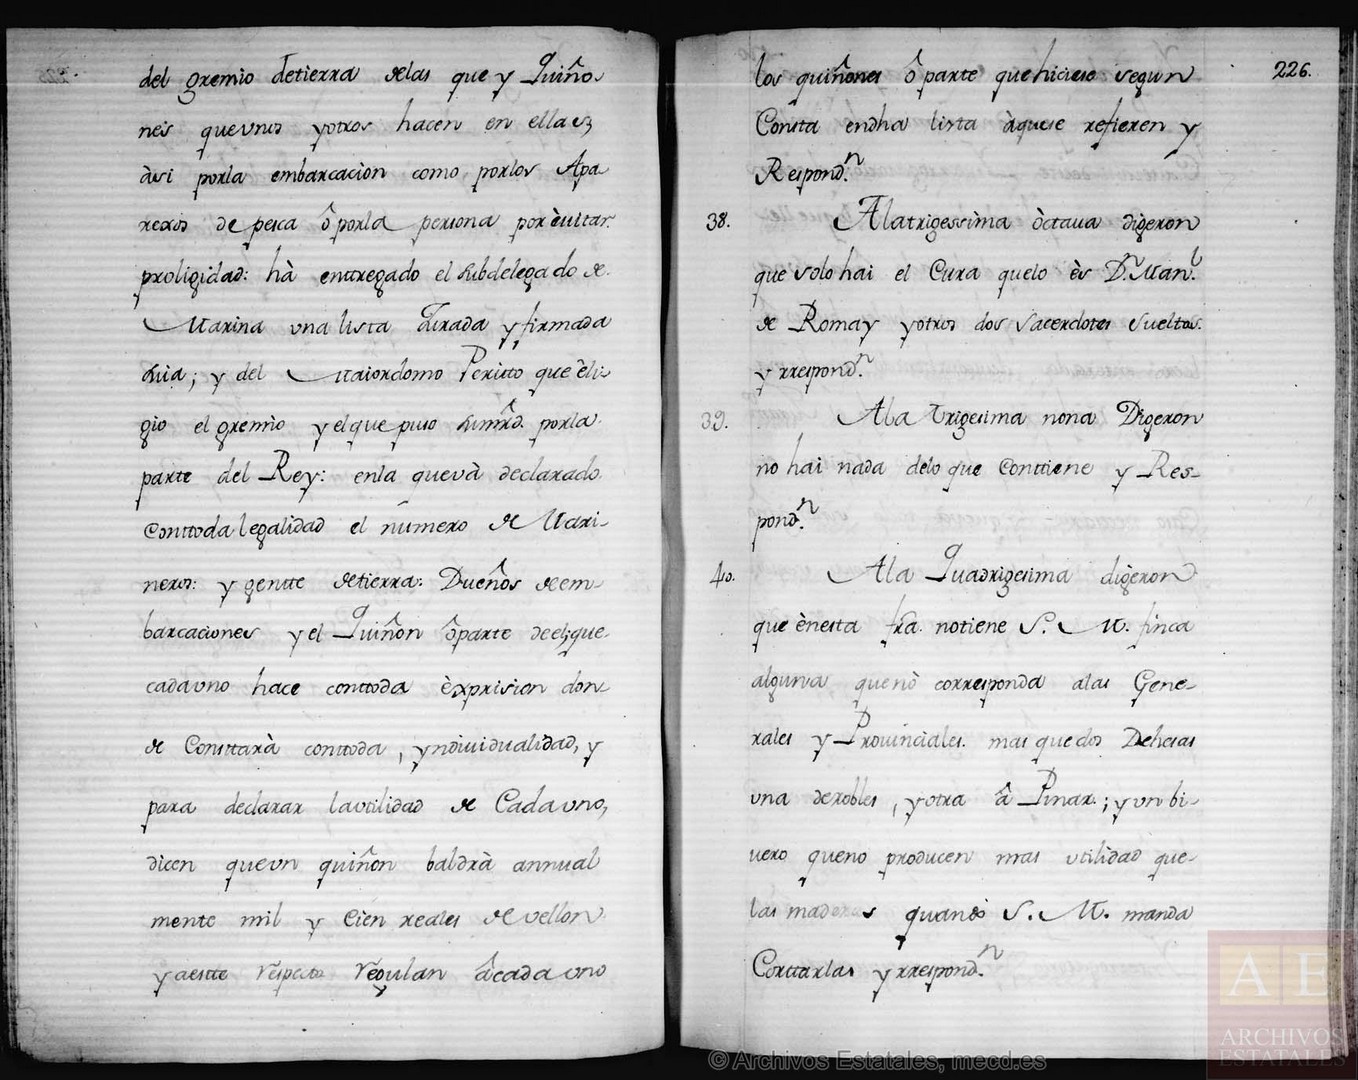 del gremio detierra delas que y Quiño-
nes queunos yotros hacen en ellas;
àsi porla embarcaciòn como porlos Apa
rexos de pesca ô porla persona porèuitar
proligidad: hà enttregado el subdelegado de
Marina una lista Jurada y firmada
suia; y del Maiordomo Peritto que èli-
gio el gremio y elque puso su mrd. porla
parte del Rey: enla quevà declarado
Conttoda legalidad el número de Mari-
neros: y gentte detierra: Dueños deem-
barcaciones y el Quiñon ôparte deel; que
cadauno hace conttoda èxprision don-
de Consttarà conttoda, yndiuidualidad, y
para declarar lautilidad de Cadauno,
dicen queun quiñon baldrà annual
mente mil y Cien reales de vellon
y aestte respecto regulan âcada uno
los quiñones ô parte que hiciese segun
Consta endha lista àquese refieren y
Respond.n
38. Alatrigessima òctaua digeron
que solo hai el Cura quelo ès D.n Man.l
de Romay yotros dos Sacerdotes sueltos
y rrespond.n
39. Ala Trigesima nona Digeron
no hai nada delo que Conttiene y Res-
pond.n
40. Ala Quadrigesima digeron
que ènesta fra. notiene S. M. finca
alguna quenò corresponda alas Gene-
rales y Prouinciales. mas que dos Dehesas
una derobles, y otra â Pinar; y un bi-
uero queno producen mas utilidad que-
las maderas quando S. M. manda
Corttarlas y rrespond.n
226.
© Archivos Estatales, mecd.es
AE
ARCHIVOS
ESTATALES